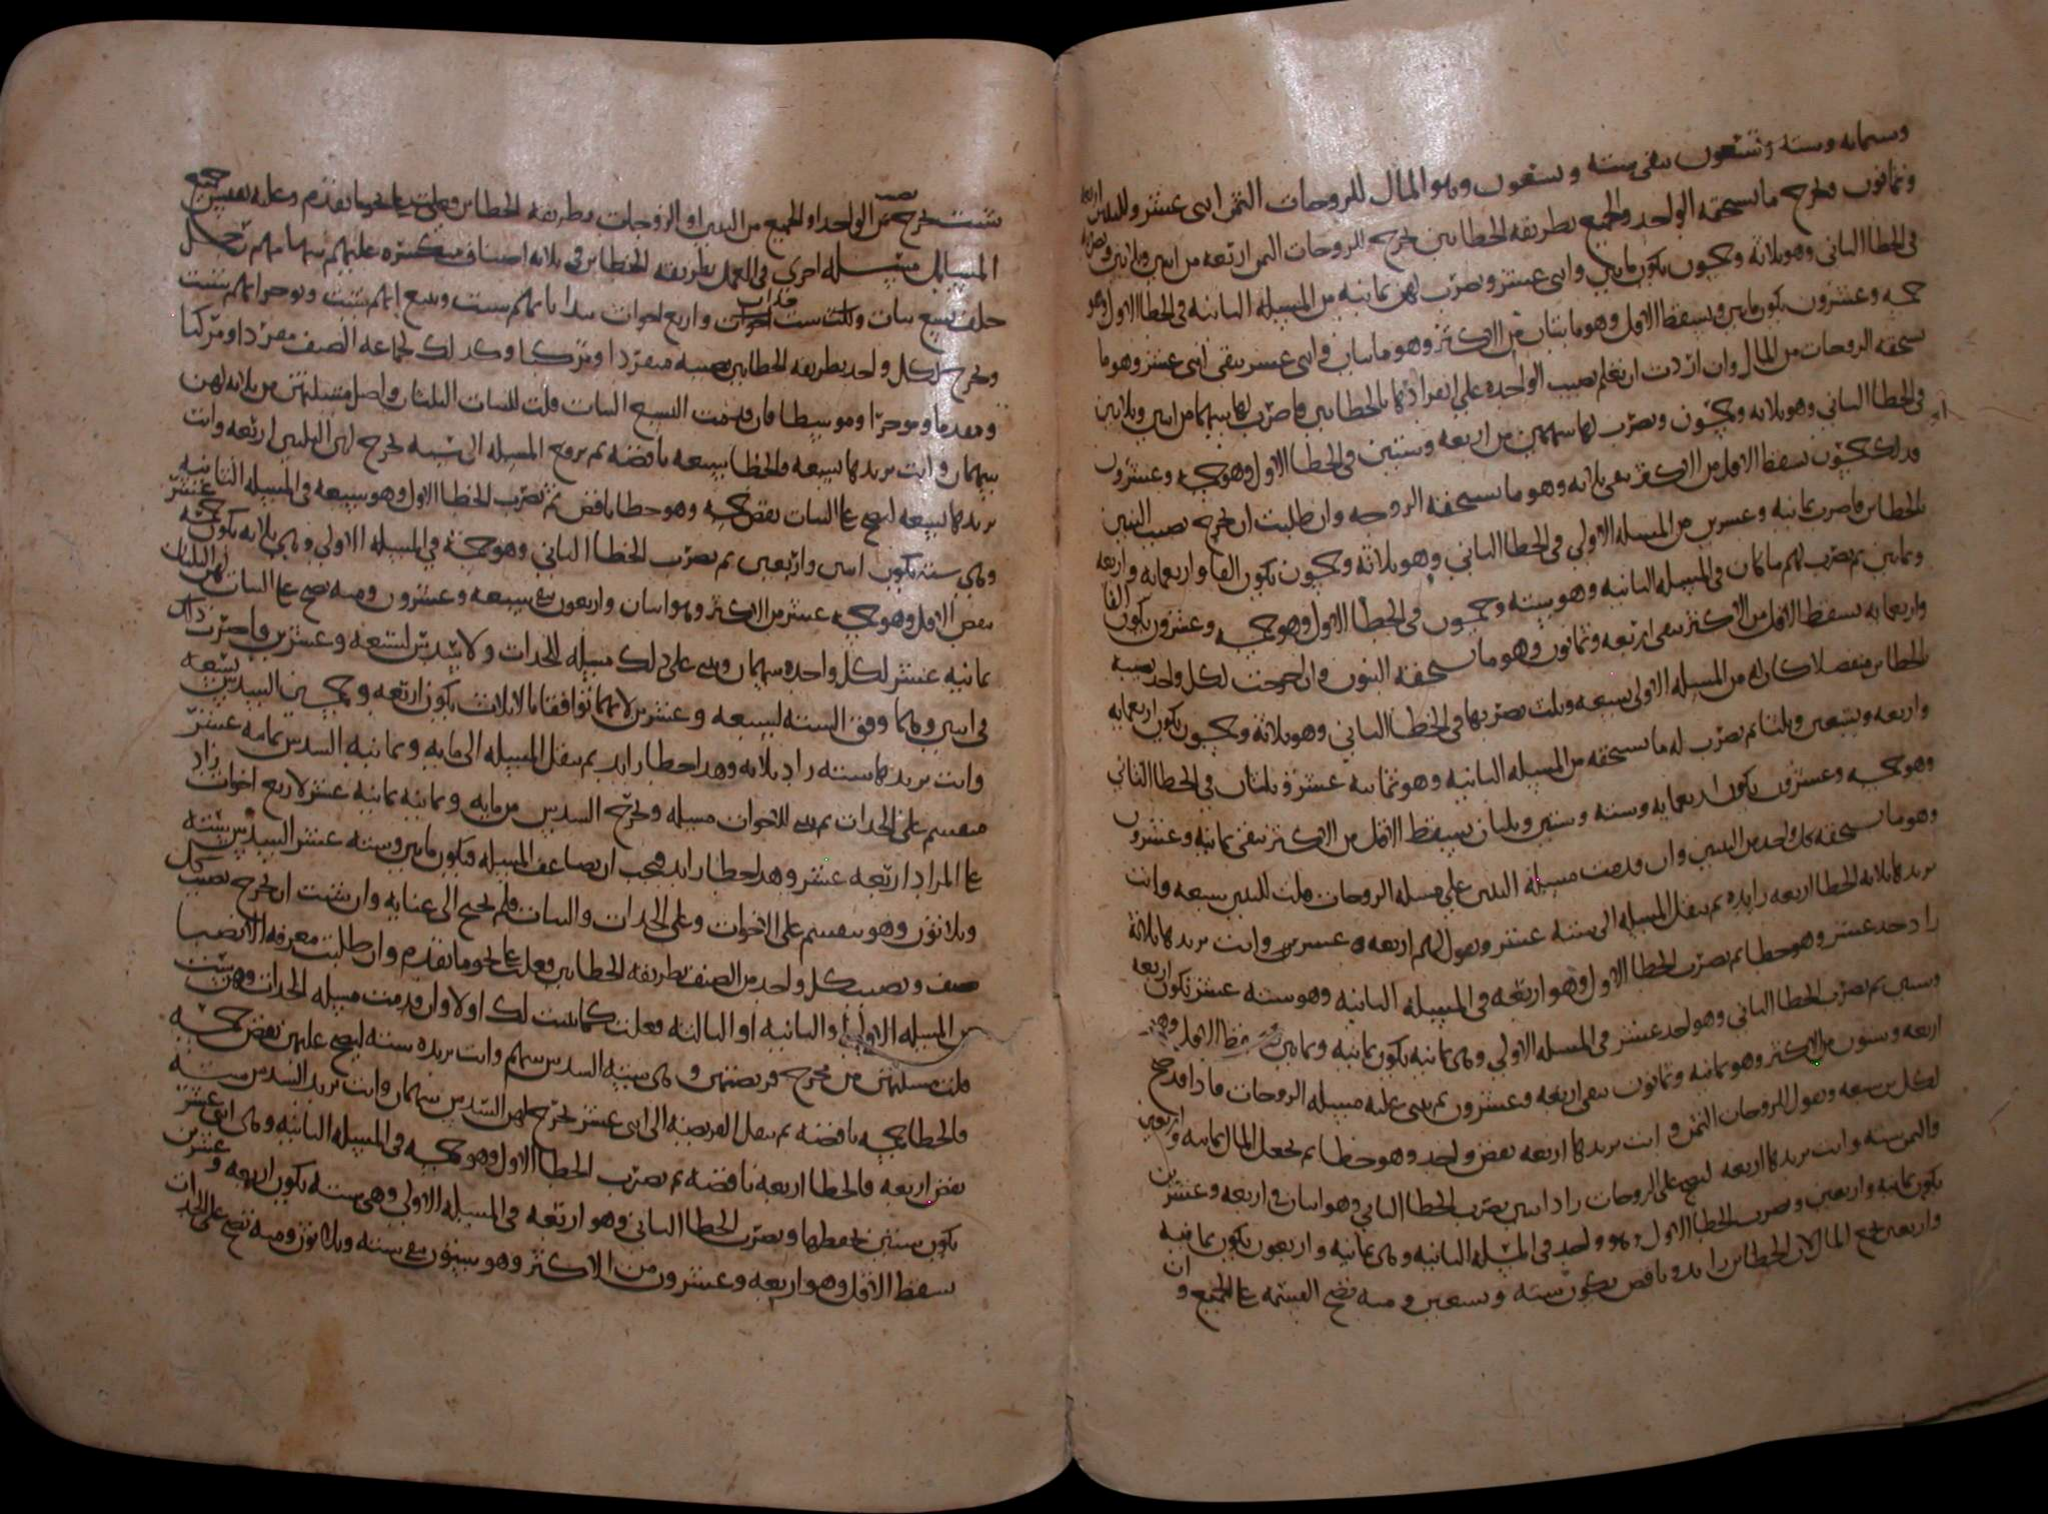 وستمايه وسته وتسعون يبقى سته وتسعون وهو المال للزوجات الثمن اثنى عشر وللبنين اربعه
وثمانون فلخرج ما يستحقه الواحد والجميع بطريقه الخطاين لخرج للزوجات الثمن اربعه من اثنين وثلاثين وتضربه
في الخطا الثاني وهو ثلاثة وخمسون يكون مايتين واثنى عشر وتضرب لهن ثمانيه من المسيله الثانيه في الخطا الاول وهو
خمسه وعشرون يكون مايتين ويسقط الاقل وهو مايتان من الاكثر وهو مايتان واثنى عشر يبقى اثنى عشر وهو ما
تستحقه الزوجات من المال وان اردت ان تعلم نصيب الواحده على انفرادها بالخطاين فاضرب لها سهما من اثنين وثلاثين
في الخطا الثاني وهو ثلاثه وخمسون وتضرب لها سهمين من اربعه وستين في الخطا الاول وهو خمسه وعشرون
فذلك خمسون تسقط الاقل من الاكثر يبقى ثلاثه وهو ما تستحقه الزوجه وان طلبت ان تخرج نصيب البنين
بالخطاين فاضرب ثمانيه وعشرين من المسيله الاولى في الخطا الثاني وهو ثلاثة وخمسون يكون الفا واربعمايه واربعه
وثمانين ثم تضرب لهم ما كان في المسيله الثانيه وهو سته وخمسون في الخطا الاول وهو خمسه وعشرون يكون الفا
واربعمايه تسقط الاقل من الاكثر يبقى اربعه وثمانون وهو ما تستحقه البنون وان اخرجت لكل واحد نصيبه
بالخطاين منفصلا كان له من المسيله الاولى تسعه وثلث تضربها في الخطا الثاني وهو ثلاثة وخمسون يكون اربعمايه
واربعه وتسعين وثلثا ثم تضرب له ما يستحقه من المسيله الثانيه وهو ثمانيه عشر وثلثان في الخطا الثاني
وهو خمسه وعشرون يكون اربعمايه وسته وستين وثلثان يسقط الاقل من الاكثر يبقى ثمانيه وعشرون
وهو ما يستحقه كل واحد من البنين وان قدمت مسيله البنين على مسيله الزوجات قلت للبنين سبعه وانت
تريدها ثلاثه الخطا اربعه زايده ثم تنقل المسيله الى سته عشر وتقول لهم اربعه عشر وانت تريدها ثلاثة
زاد احد عشر وهو خطا ثم تضرب الخطا الاول وهو اربعه في المسيله الثانيه وهو سته عشر يكون اربعه
وستين ثم تضرب الخطا الثاني وهو احد عشر في المسيله الاولى وهى ثمانيه يكون ثمانيه وثمانين يسقط الاقل وهو
اربعه وستون من الاكثر وهو ثمانيه وثمانون يبقى اربعه وعشرون ثم تبنى عليه مسيله الزوجات فاذا قد صح
لكل من سبعه وتقول للزوجات الثمن وانت تريدها اربعه نقص واحد وهو خطا ثم تجعل المال ثمانيه واربعين
والثمن سته وانت تريدها اربعه ليصح على الزوجات زاد اثنين تضرب الخطا الثاني وهو اثنان في اربعه وعشرين
يكون ثمانيه واربعين وتضرب الخطا الاول وهو واحد في المسيله الثانيه وهى ثمانيه واربعون يكون ثمانيه
واربعين تجمع المال لان الخطاين زايد وناقص يكون سته وتسعين ومنه تصح القسمه على الجميع وان
شئت تخرج نصيب الواحد او الجميع من البنين او الزوجات بطريقه الخطاين وعلى نحو ما تقدم وعليه تقيس جميع
المسايل مسيله اخرى في العمل بطريقه الخطاين في ثلاثه اصناف منكسره عليهم سهامهم رجل
خلف تسع بنات وثلث ست جدات واربع اخوات تبدا بايهم شيت وتتبع ايهم شيت وتوخر ايهم شيت
وتخرج كل واحد بطريقه الخطاين نصيبه منفردا ومركبا وكذلك لجماعه الصنف مفردا ومركبا
ومقدما وموخرا وموسطا فان قدمت التسع البنات قلت للبنات الثلثان واصل مسيلتهن من ثلاثه لهن
سهمان وانت تريدها تسعه فالخطا سبعه ناقصه ثم تروح المسيله الى سته تخرج لهن الثلثين اربعه وانت
تريدها تسعه ليصح على البنات نقص خمسه وهو خطا ناقص ثم تضرب الخطا الاول وهو سبعه في المسيله الثانيه
وهى سته يكون اثنين واربعين ثم تضرب الخطا الثاني وهو خمسة في المسيله الاولى وهى ثلاثه يكون خمسه عشر
نقص الاقل وهو خمسه عشر من الاكثر وهو اثنان واربعون بقى سبعه وعشرون ومنه تصح على البنات لهن الثلثان
ثمانيه عشر لكل واحده سهمان وتبنى على ذلك مسيله الجدات ولا سدس لسبعه وعشرين فاضرب ذلك
في اثنين وهما وفق السته لسبعه وعشرين لانهما توافقتا بالاثلاث يكون اربعه وخمسين السدس تسعه
وانت تريدها سته زاد ثلاثه وهذا خطا زايد ثم تنقل المسيله الى مايه وثمانيه السدس ثمانيه عشر
منقسم على الجدات ثم تبنى للاخوات مسيله وتخرج السدس من مايه وثمانيه ثمانيه عشر لاربع اخوات زاد
على المراد اربعه عشر وهذا خطا زايد فيجب ان تضاعف المسيله فتكون مايتين وسته عشر السدس سته
وثلاثون وهو منقسم على الاخوات وعلى الجدات والبنات فلم نحتج الى عنايه وان شيت ان تخرج نصيب كل
صنف ونصيب كل واحد من الصنف بطريقه الخطاين فعلت على نحو ما تقدم وان طلبت معرفه الانصبا
من المسيله الاولى او الثانيه او الثالثه فعلت كما شيت لك اولا وان قدمت مسيله الجدات وهن ست
قلت مسيلتهن من مخرج فريضتهن وهى سته السدس سهم وانت تريده سته ليصح عليهن نقص خمسه
فالخطا خمسه ناقصه ثم تنقل الفريضه الى اثنى عشر تخرج لهن السدس سهمان وانت تريد السدس سته
نقص اربعه فالخطا اربعه ناقصه ثم تضرب الخطا الاول وهو خمسه في المسيله الثانيه وهى اثنى عشر
يكون ستين تحفظها وتضرب الخطا الثاني وهو اربعه في المسيله الاولى وهى سته يكون اربعه وعشرين
تسقط الاقل وهو اربعه وعشرون من الاكثر وهو ستون بقى سته وثلاثون ومنه تصح على الجدات